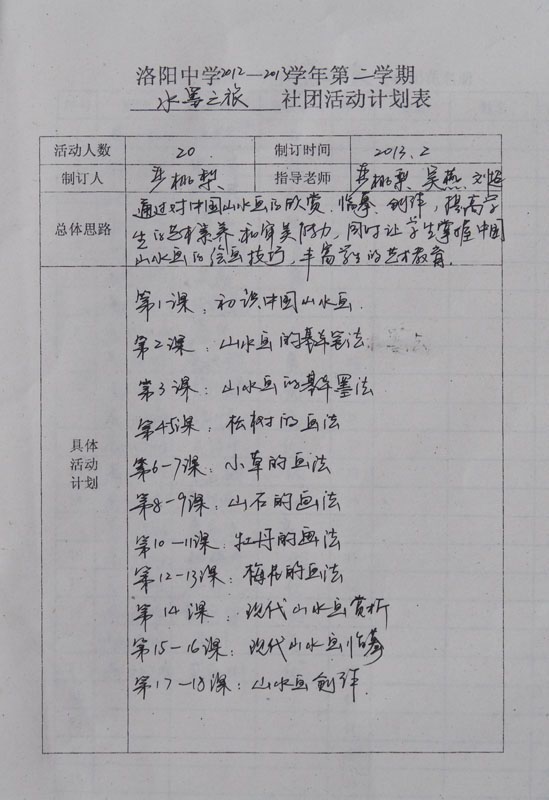 洛阳中学2012—2013学年第二学期
水墨之旅 社团活动计划表
活动人数 20 制订时间 2013.2
制订人 桃梨 指导老师 桃梨 吴燕 刘
总体思路
通过对中国山水画的欣赏、临摹、创作,提高学
生的艺术素养和审美能力,同时让学生掌握中国
山水画的绘画技巧,丰富学生的艺术教育.
具体
活动
计划
第1课:初识中国山水画.
第2课:山水画的基本笔法
第3课:山水画的基本墨法
第4-5课:松树的画法
第6-7课:小草的画法
第8-9课:山石的画法
第10-11课:牡丹的画法
第12-13课:梅花的画法
第14课:现代山水画赏析
第15-16课:现代山水画临摹
第17-18课:山水画创作.